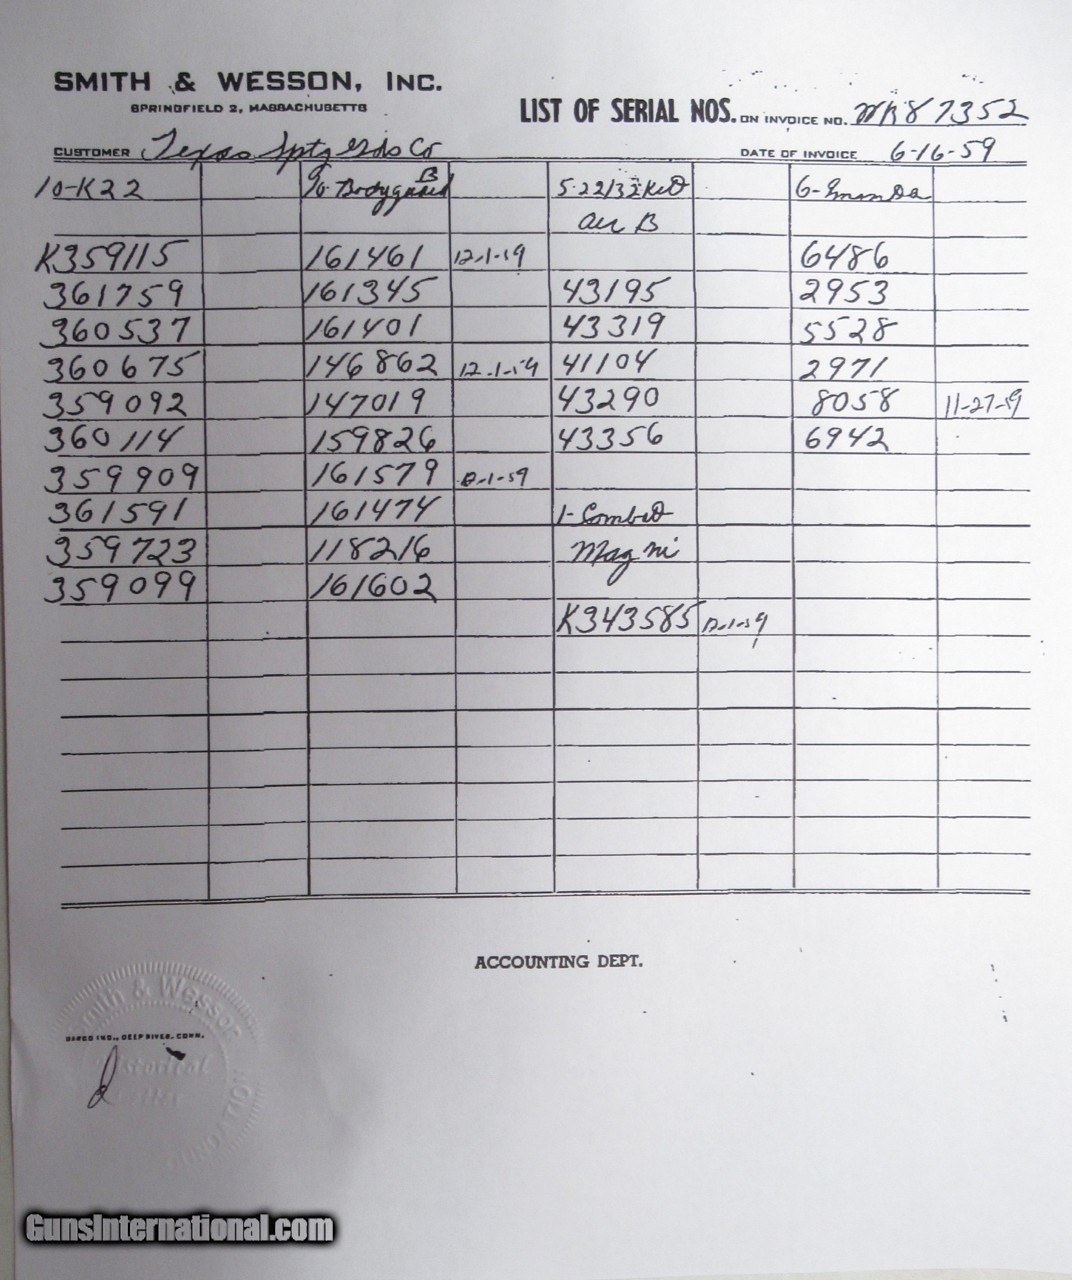 SMITH & WESSON, INC.
SPRINGFIELD 2, MASSACHUSETTS
LIST OF SERIAL NOS. ON INVOICE NO. 87352
CUSTOMER Texas Co
DATE OF INVOICE 6-16-59
10-K22 Bodyguard B 5-22/32 Kit 6-
B
K359115 161461 12-1-59 6486
361759 161345 43195 2953
360537 161401 43319 5528
360675 146862 12-1-59 41104 2971
359092 147019 43290 8058 11-27-59
360114 159826 43356 6942
359909 161579 12-1-59
361591 161474 1-Combat
359723 118216 Mag ni
359099 161602
K343585 12-1-59
ACCOUNTING DEPT.
Smith & Wesson
DARCO INC., DEEP RIVER, CONN.
Historical
FOUNDATION
GunsInternational.com